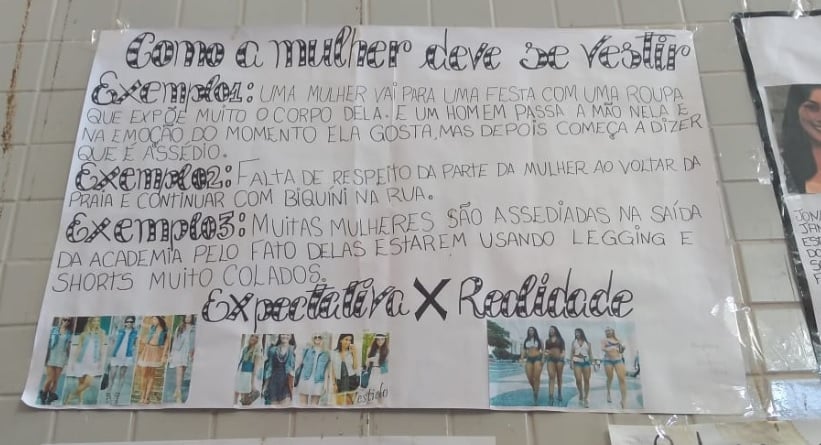 Como a mulher deve se vestir
Exemplo1: UMA MULHER VAI PARA UMA FESTA COM UMA ROUPA
QUE EXPÕE MUITO O CORPO DELA. E UM HOMEM PASSA A MÃO NELA E
NA EMOÇÃO DO MOMENTO ELA GOSTA, MAS DEPOIS COMEÇA A DIZER
QUE É ASSÉDIO.
Exemplo2: FALTA DE RESPEITO DA PARTE DA MULHER AO VOLTAR DA
PRAIA E CONTINUAR COM BIQUÍNI NA RUA.
Exemplo3: MUITAS MULHERES SÃO ASSEDIADAS NA SAÍDA
DA ACADEMIA PELO FATO DELAS ESTAREM USANDO LEGGING E
SHORTS MUITO COLADOS.
Expectativa X Realidade
Vestido